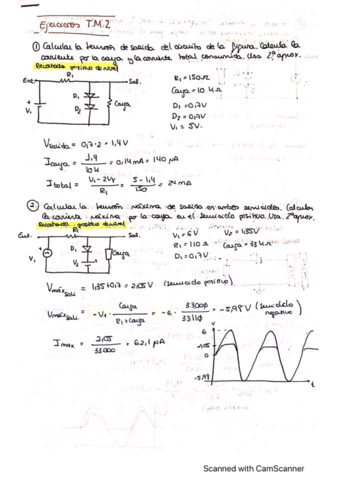 Ejercicios T.M.2
① Calcular la tensión de salida del circuito de la figura. Calcula la
corriente por la carga y la corriente total consumida. Usa 2ª aprox.
Recortador positivo de nivel
R₁
Ent.
Sal.
R₁ = 150 Ω
Carga = 10 kΩ
D₁ = 0,7V
D₂ = 0,7V
V₁ = 5V.
D₁
D₂
Carga
V₁
Vsalida = 0,7·2 = 1,4V
Icarga = 1,4 / 10k = 0,14mA = 140 μA
Itotal = V₁ - 2Vγ / R₁ = 5 - 1,4 / 150 = 24mA
② Calcular la tensión máxima de salida en ambos semiciclos. Calcular
la corriente máxima por la carga en el semiciclo positivo. Usa 2ª aprox.
Recortador positivo de nivel
Ent.
R₁
Sal.
V₁ = 6V
V₂ = 1,35V
R₁ = 110 Ω
Carga = 33 kΩ
D₁ = 0,7V
D₁
Carga
V₁
V₂
Vmáx sal = 1,35 + 0,7 = 2,05V (semiciclo positivo)
Vmáx sal = -V₁ · Carga / R₁ + Carga = -6 · 33000 / 33110 = -5,98V (semiciclo negativo)
Imax = 2,05 / 33000 = 62,1 μA
V
6
2,05
0
-5,98
t
Scanned with CamScanner